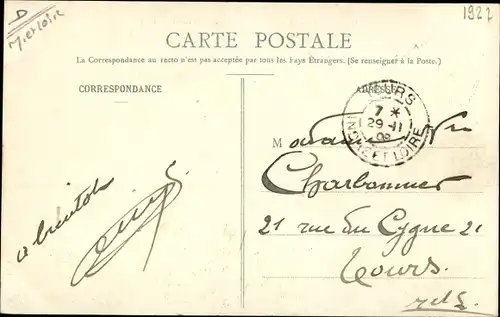 1927
D
M et Loire
CARTE POSTALE
La Correspondance au recto n'est pas acceptée par tous les Pays Étrangers. (Se renseigner à la Poste.)
CORRESPONDANCE
ADRESSE
TOURS
7 *
29 -11
08
INDRE ET LOIRE
a bientot
Charbonnier
21 rue du Cygne 21
Tours.